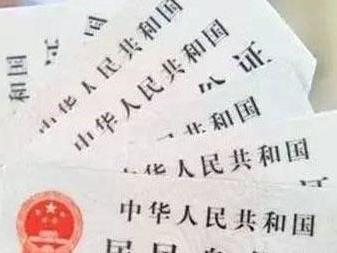 和国
证
中华人民共和国
中华人民共和国
份证
民共和国
人民共和国
证
中华人民共和国
居民身份